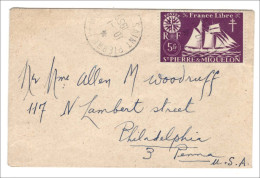 SAINT PIERRE
France Libre
RF
5F
ST PIERRE & MIQUELON
Mr Mme Allen M Woodruff
117 N Lambert street
Philadelphia
3 Penna
U.S.A.